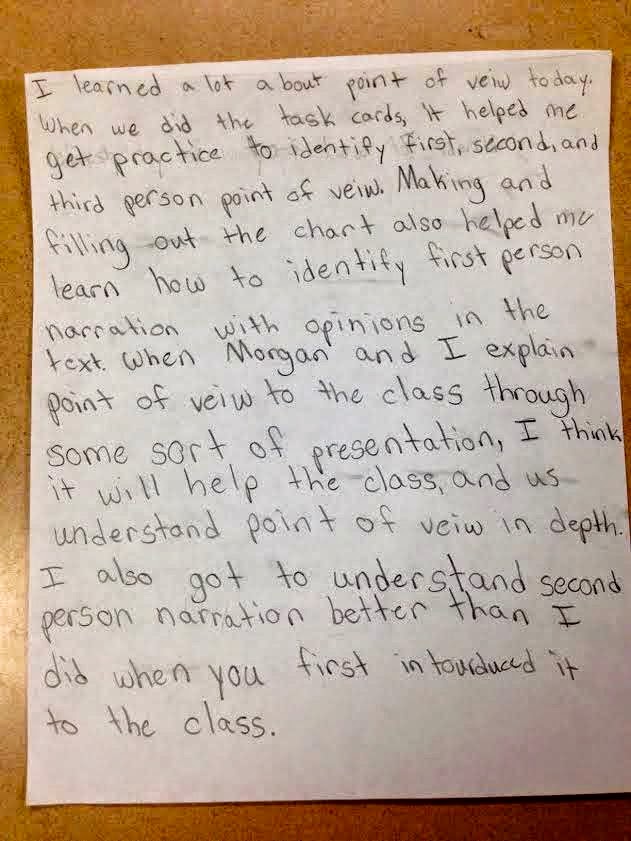 I learned a lot about point of veiw today.
When we did the task cards, it helped me
get practice to identify first, second, and
third person point of veiw. Making and
filling out the chart also helped me
learn how to identify first person
narration with opinions in the
text. When Morgan and I explain
point of veiw to the class through
some sort of presentation, I think
it will help the class, and us
understand point of veiw in depth.
I also got to understand second
person narration better than I
did when you first intourduced it
to the class.